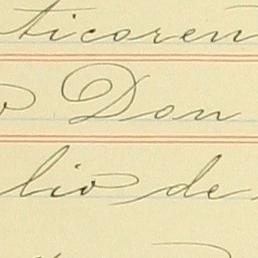 ticoren
o Don
lio de